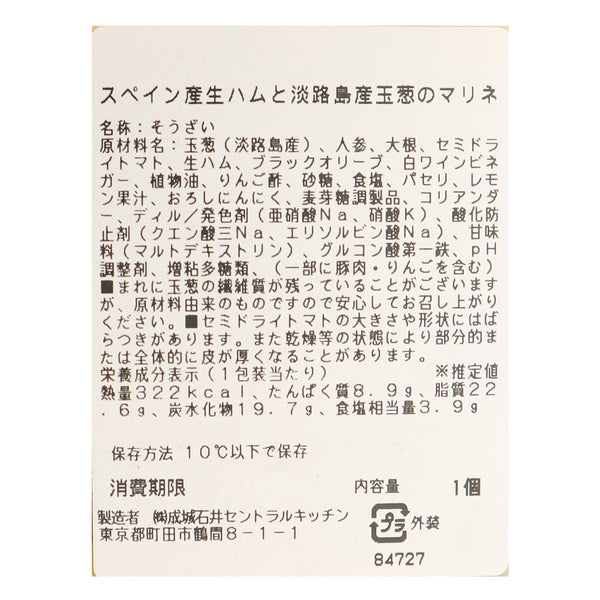 スペイン産生ハムと淡路島産玉葱のマリネ
名称：そうざい
原材料名：玉葱（淡路島産）、人参、大根、セミドラ
イトマト、生ハム、ブラックオリーブ、白ワインビネ
ガー、植物油、りんご酢、砂糖、食塩、パセリ、レモ
ン果汁、おろしにんにく、麦芽糖調製品、コリアンダ
ー、ディル／発色剤（亜硝酸Ｎａ、硝酸Ｋ）、酸化防
止剤（クエン酸三Ｎａ、エリソルビン酸Ｎａ）、甘味
料（マルトデキストリン）、グルコン酸第一鉄、ｐＨ
調整剤、増粘多糖類、（一部に豚肉・りんごを含む）
■まれに玉葱の繊維質が残っていることがございます
が、原材料由来のものですので安心してお召し上がり
ください。■セミドライトマトの大きさや形状にはば
らつきがあります。また乾燥等の状態により部分的ま
たは全体的に皮が厚くなることがあります。
栄養成分表示（１包装当たり） ※推定値
熱量３２２ｋｃａｌ、たんぱく質８．９ｇ、脂質２２
．６ｇ、炭水化物１９．７ｇ、食塩相当量３．９ｇ
保存方法 １０℃以下で保存
消費期限 内容量 １個
製造者 ㈱成城石井セントラルキッチン
東京都町田市鶴間８－１－１
プラ 外装
84727